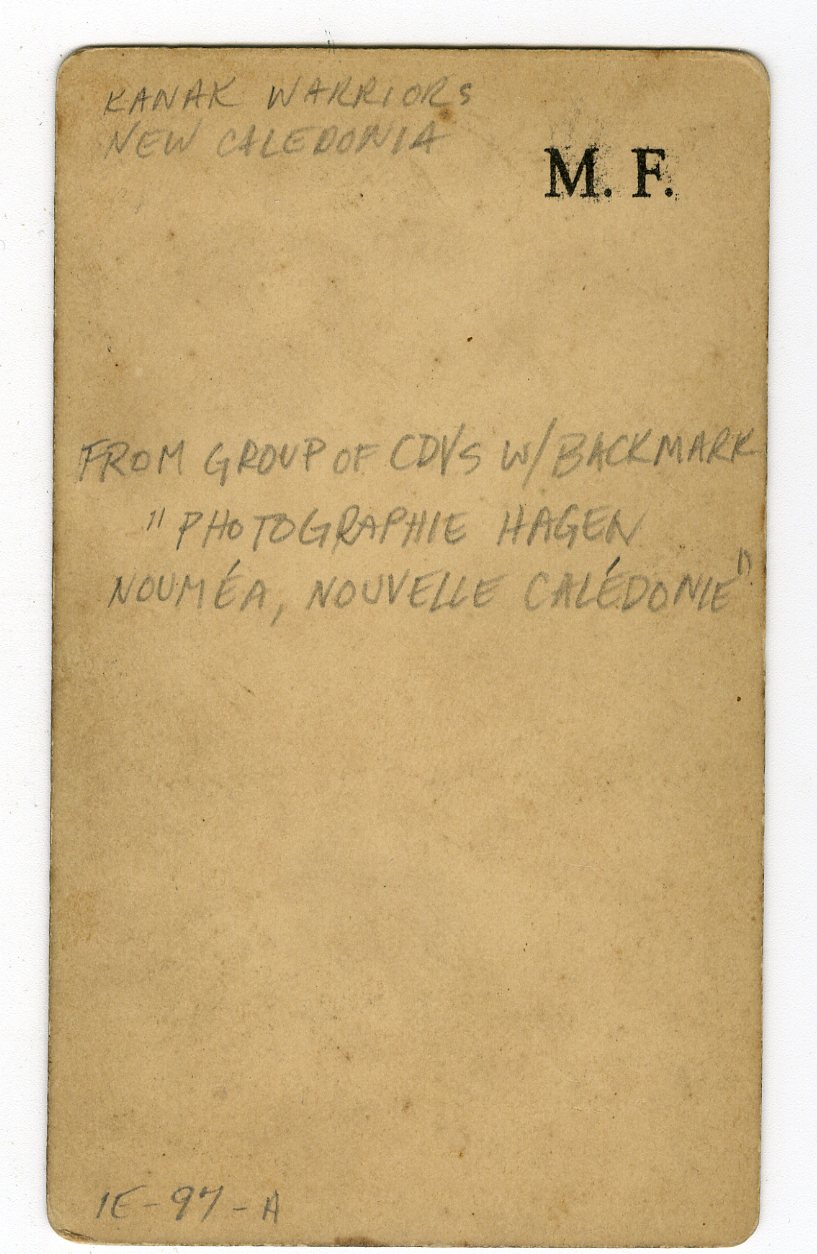 KANAK WARRIORS
NEW CALEDONIA
M. F.
FROM GROUP OF CDVS W/BACKMARK
"PHOTOGRAPHIE HAGEN
NOUMÉA, NOUVELLE CALÉDONIE"
1E-97-A